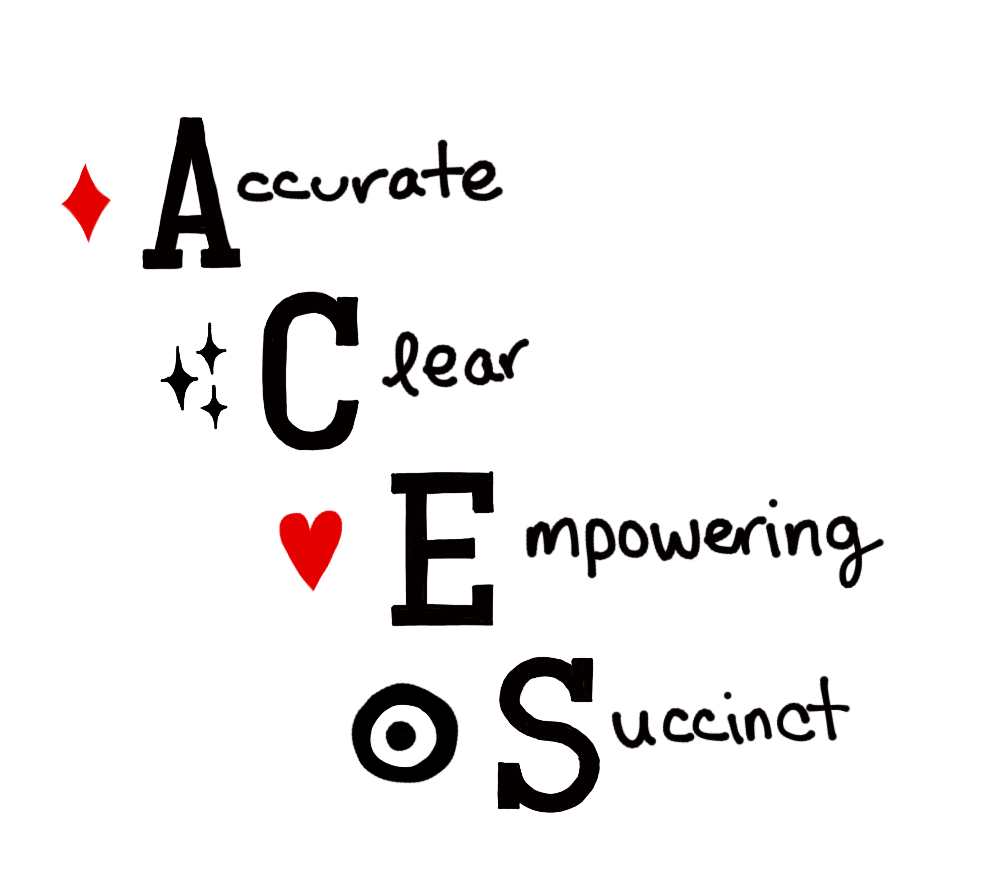 Accurate
Clear
Empowering
Succinct